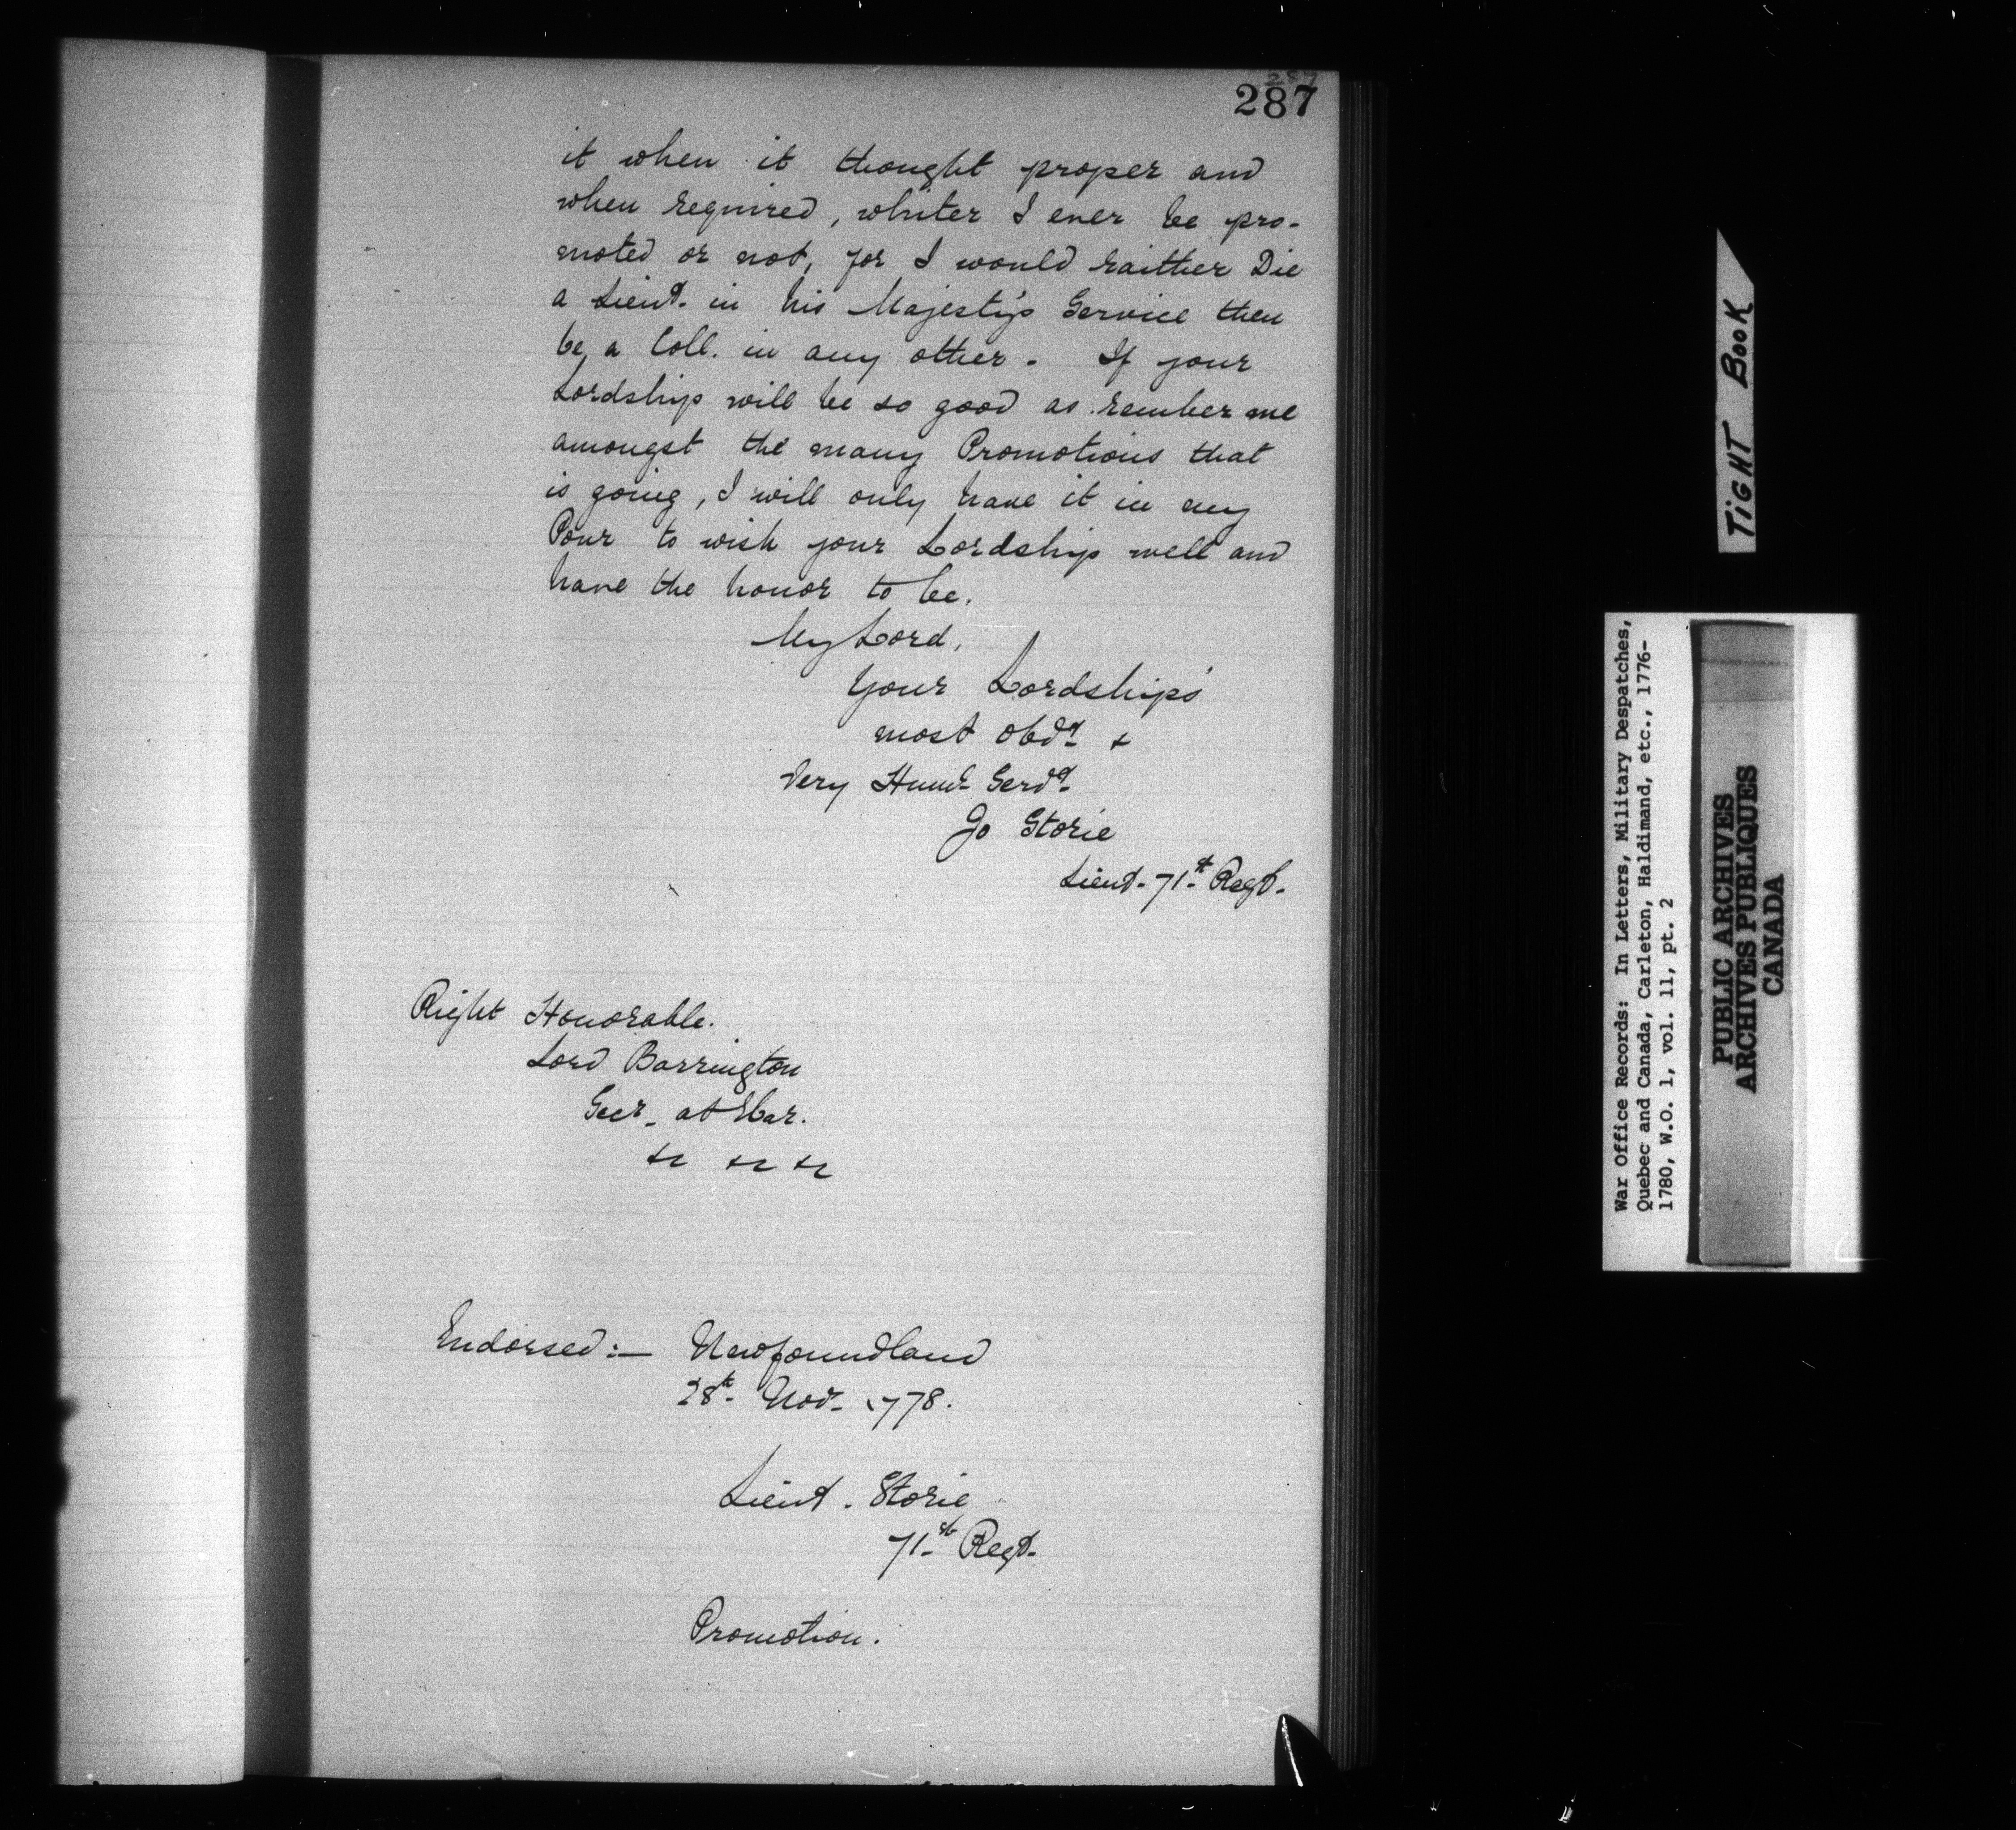 287
287
it when it thought proper and
when required, whiter I ever be pro-
moted or not, for I would raither Die
a Lieut. in his Majesty's Service then
be a Coll. in any other. If your
Lordship will be so good as rember me
amongst the many Promotions that
is going, I will only have it in my
Pour to wish your Lordship well and
have the honor to be.
My Lord,
Your Lordships'
most Obdt &
Very Humb Servt
Jo Storie
Lieut. 71st Regt.
Right Honorable.
Lord Barrington
Secr. at War.
&c &c &c
Endorsed:— Newfoundland
28th Novr 1778.
Lieut. Storie
71st Regt.
Promotion.
TIGHT BOOK
War Office Records: In Letters, Military Despatches,
Quebec and Canada, Carleton, Haldimand, etc., 1776-
1780, W.O. 1, vol. 11, pt. 2
PUBLIC ARCHIVES
ARCHIVES PUBLIQUES
CANADA